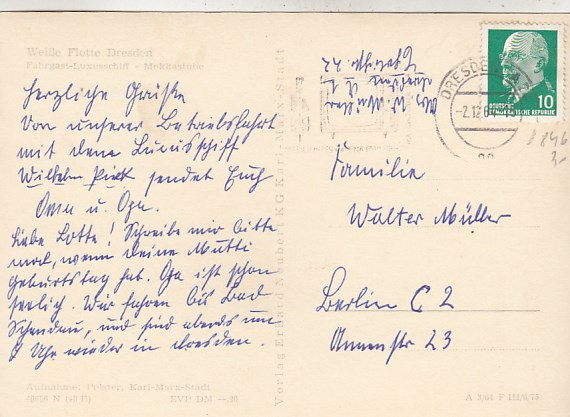 Weiße Flotte Dresden
Fahrgast-Luxusschiff - Mokkastube
Herzliche Grüße
Von unserer Betriebsfahrt
mit dem Luxusschiff
Wilhelm Piek sendet Euch
Oma u. Opa.
Liebe Lotte! Schreibe mir bitte
mal, wenn deine Mutti
Geburtstag hat. Opa ist schon
seelich. Wir fahren bis Bad
Schandau, und sind abends um
Uhr wieder in Dresden.
Aufnahmer Karl-Marx-Stadt
N EVP DM --.30
Verlag Erhard Neubert KG Karl-Marx-Stadt
Abs. W. Müller
Dresden
DRESDEN
-2.12.6
DEUTSCHE
DEMOKRATISCHE REPUBLIK
10
846
3,-
Familie
Walter Müller
Berlin C 2
Annenstr 23
A 2/64 F 111/6/75